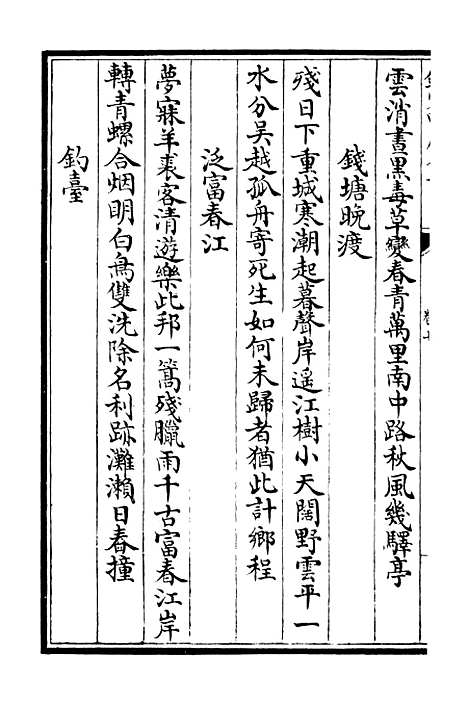 雲消晝黑毒草變春青萬里南中路秋風幾驛亭
錢塘晚渡
殘日下重城寒潮起暮聲岸遥江樹小天闊野雲平一
水分吳越孤舟寄死生如何未歸者猶此計鄉程
泛富春江
夢寐羊裘客清遊樂此邦一篙殘臘雨千古富春江岸
轉青螺合烟明白鳥雙洗除名利跡灘瀨日舂撞
釣臺